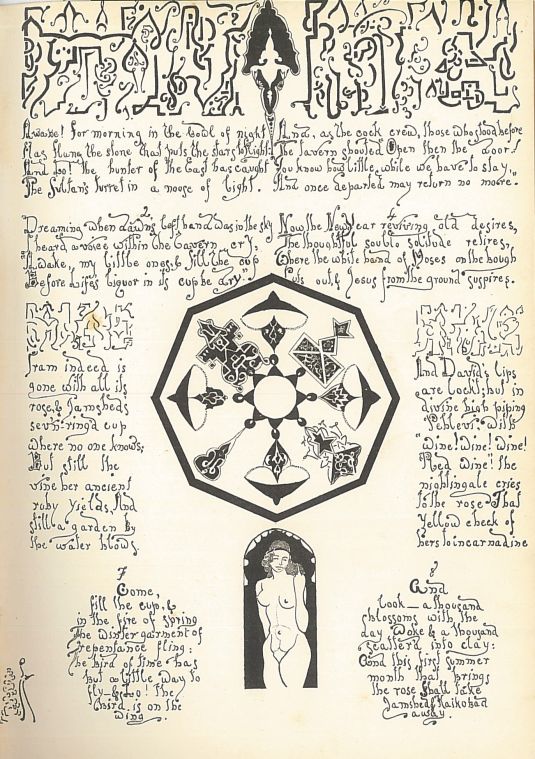 Awake! for morning in the bowl of night
Has flung the stone that puts the stars to flight:
And lo! the hunter of the East has caught
The Sultan's turret in a noose of light.
2
Dreaming when dawn's left hand was in the sky
I heard a voice within the tavern cry,
"Awake, my little ones, & fill the cup
Before Life's liquor in its cup be dry."
And, as the cock crew, those who stood before
The tavern shouted Open then the door!
You know how little while we have to stay,
And once departed may return no more.
4
Now the New Year reviving old desires,
The thoughtful soul to solitude retires,
Where the white hand of Moses on the bough
Puts out, & Jesus from the ground suspires.
Iram indeed is
gone with all its
rose, & Jamsheds
sev'n-ring'd cup
where no one knows;
But still the
vine her ancient
ruby yields, And
still a garden by
the water blows.
And David's lips
are lock't; but in
divine high piping
Pehlevi, with
"Wine! Wine! Wine!
Red Wine! the
nightingale cries
to the rose That
Yellow cheek of
hers to incarnadine
7
Come,
fill the cup, &
in the fire of spring
The winter garment of
repentance fling:
the bird of time has
but a little way to
fly - & Lo! the
bird is on the
wing.
8
And
look - a thousand
blossoms with the
day Woke & a thousand
scatter'd into clay:
And this first summer
month that brings
the rose Shall take
Jamshed & Kaikobad
away.